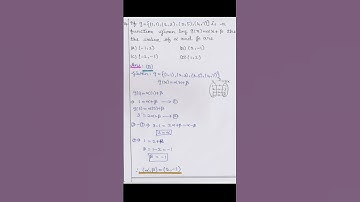 If g = {(1,1), (2,3), (3,5), (4,7)} is a
function given by g(x)=αx+β then
the value of α and β are
(A) (-1,2) (B) (2,-1)
(C) (-2,-1) (D) (1,2)
Ans: (B)
Given: g = {(1,1), (2,3), (3,5), (4,7)}
g(x)=αx+β
g(1) = α(1)+β
1 = α+β → ①
g(2) = α(2)+β
3 = 2α+β → ②
3-1 = 2α+β-α-β
2 = α
1 = 2+β
β = 1-2 = -1
β = -1
∴ (α,β) = (2,-1)